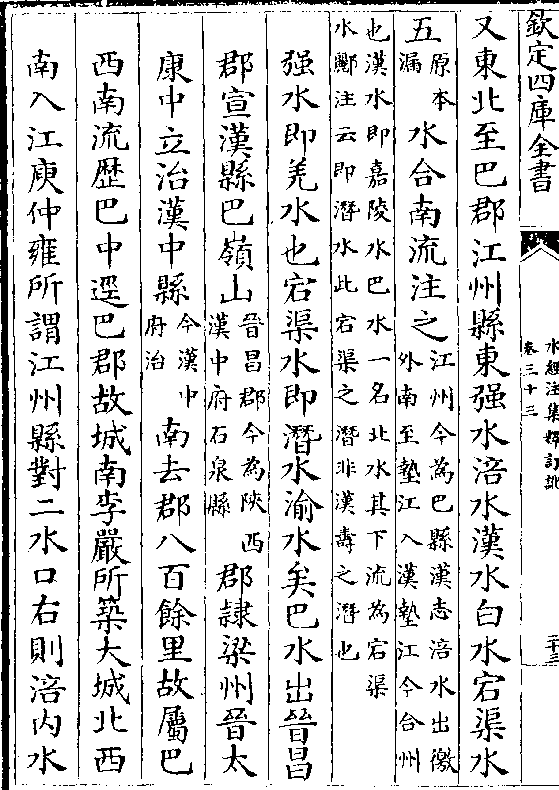 欽定四庫全書
水經注集釋訂訛
卷三十三
二十三
又東北至巴郡江州縣東强水涪水漢水白水宕渠水
五原本漏水合南流注之江州今為巴縣漢志涪水出徼外南至墊江入漢墊江今合州
也漢水即嘉陵水巴水一名北水其下流為宕渠水酈注云即潛水此宕渠之潛非漢壽之潛也
强水即羌水也宕渠水即潛水渝水矣巴水出晉昌
郡宣漢縣巴嶺山晉昌郡今為陜西漢中府石泉縣郡隸梁州晉太
康中立治漢中縣今漢中府治南去郡八百餘里故屬巴
西南流歴巴中逕巴郡故城南李嚴所築大城北西
南入江庾仲雍所謂江州縣對二水口右則涪内水